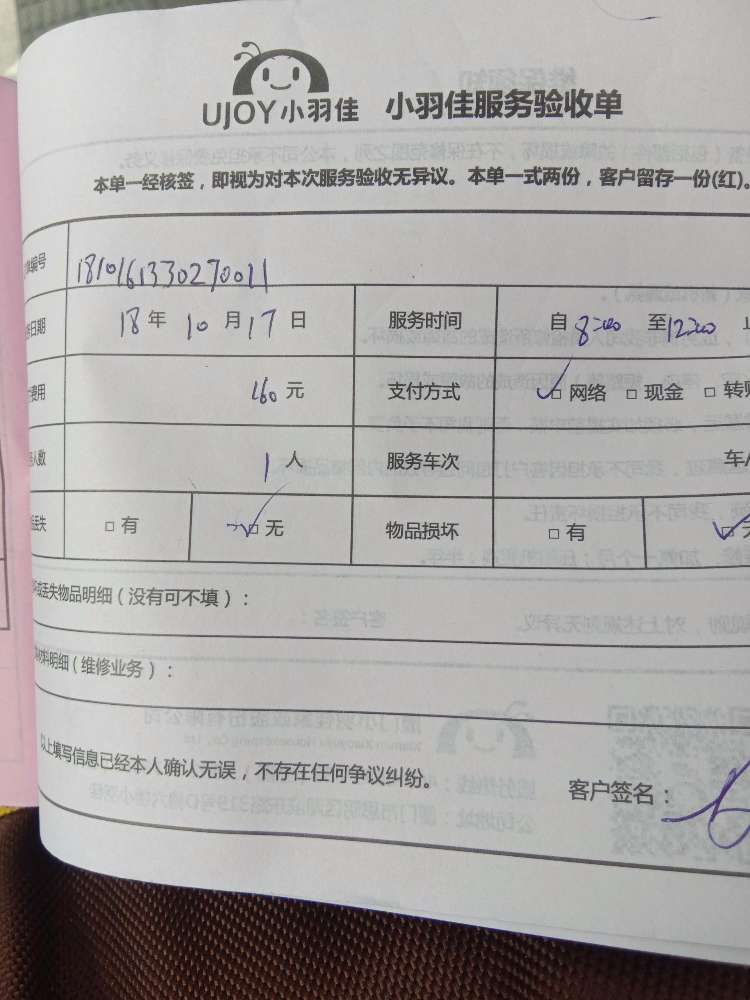 UJOY小羽佳 小羽佳服务验收单
本单一经核签，即视为对本次服务验收无异议。本单一式两份，客户留存一份(红)。
编号 1810161330270011
日期 18年10月17日 服务时间 自8:00至12:00止
费用 160元 支付方式 □网络 □现金 □转账
人数 1人 服务车次 车/
丢失 □有 □无 物品损坏 □有 □无
或丢失物品明细（没有可不填）：
材料明细（维修业务）：
以上填写信息已经本人确认无误，不存在任何争议纠纷。
客户签名：